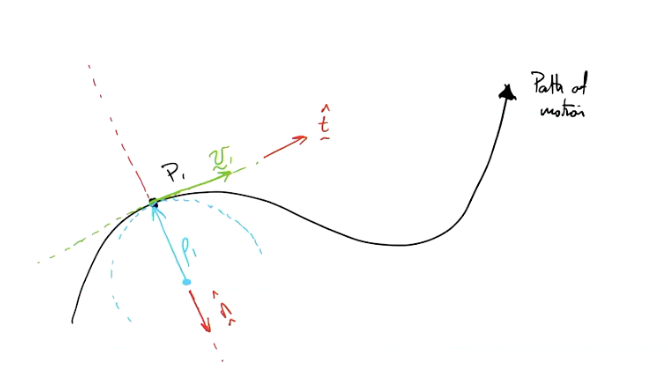 Path of
motion
t̂
v₁
P₁
ρ₁
n̂